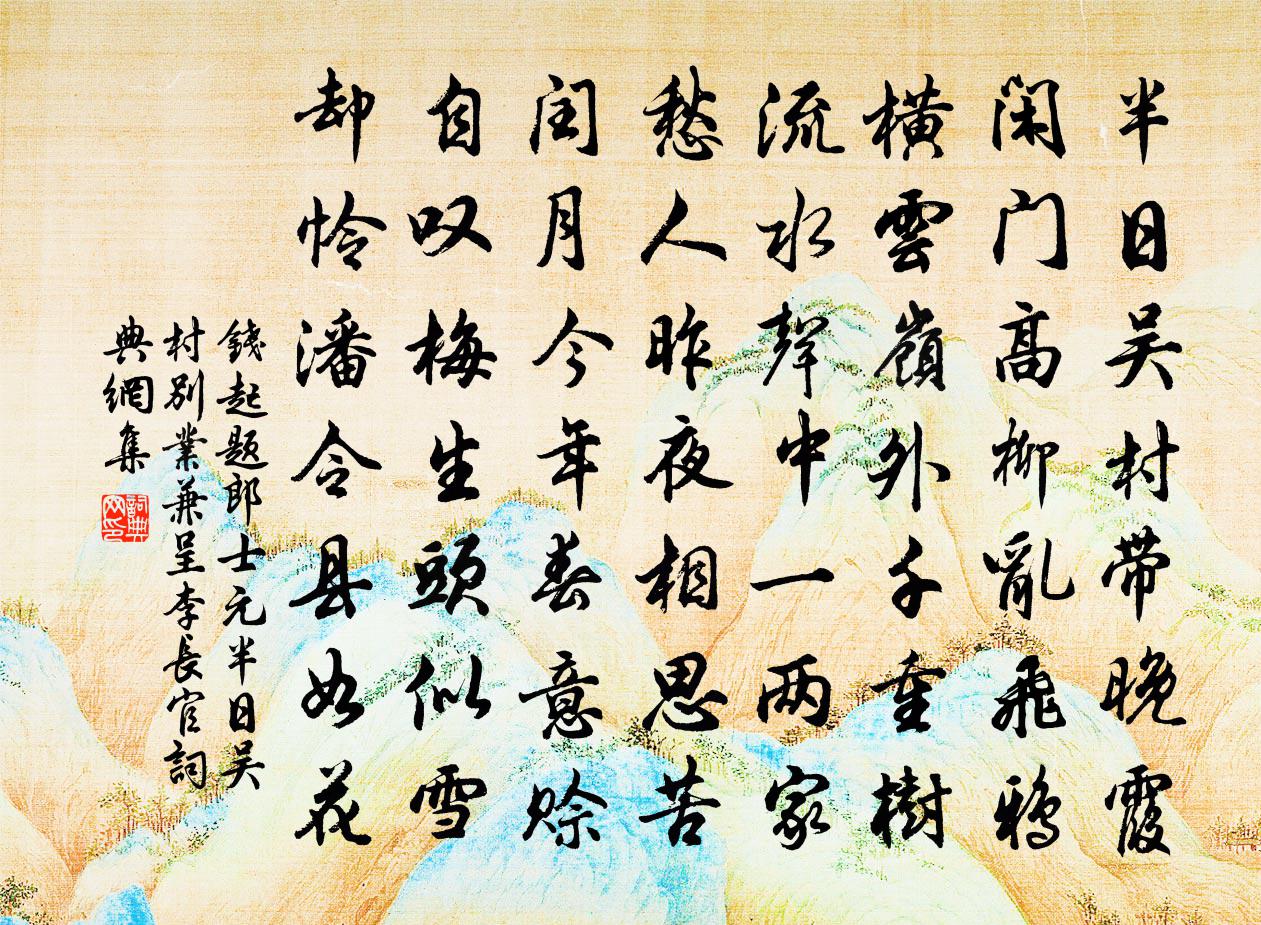 半日吴村带晚霞
闲门高柳亂飛鸦
横雲嶺外千重樹
流水聲中一两家
愁人昨夜相思苦
闰月今年春意赊
自叹梅生頭似雪
却怜潘令县如花
錢起题郎士元半日吴
村别業兼呈李長官詞
典網集
詞典
网印